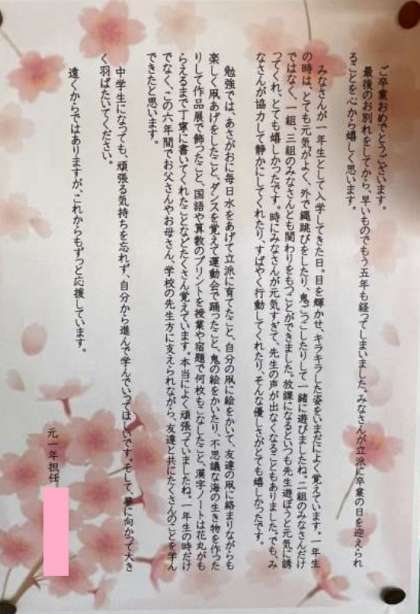 ご卒業おめでとうございます。
最後のお別れをしてから、早いものでもう五年も経ってしまいました。みなさんが立派に卒業の日を迎えられ
ることを心から嬉しく思います。
みなさんが一年生として入学してきた日。目を輝かせ、キラキラした姿をいまだによく覚えています。一年生
の時は、とても元気がよく、外で縄跳びをしたり、鬼ごっこしたりして一緒に遊びましたね。二組のみなさんだけ
ではなく、一組、三組のみなさんとも関わりをもつことができました。放課になるといつも先生遊ぼうと元気に誘
ってくれ、とても嬉しかったです。時にみなさんが元気すぎて、先生の声が出なくなることもありました。でも、み
なさんが協力して静かにしてくれたり、すばやく行動してくれたり、そんな優しさがとても嬉しかったです。
勉強では、あさがおに毎日水をあげて立派に育てたこと、自分の凧に絵をかいて、友達の凧に絡まりながらも
楽しく凧あげをしたこと、ダンスを覚えて運動会で踊ったこと、鬼の絵をかいたり、不思議な海の生き物を作った
りして作品展で飾ったこと、国語や算数のプリントを授業や宿題で何枚もこなしたこと、漢字ノートは花丸がも
らえるまで丁寧に書いてくれたことなどたくさん覚えています。本当によく頑張っていましたね。一年生の時だけ
でなく、この六年間でお父さんやお母さん、学校の先生方に支えられながら、友達と共にたくさんのことを学ん
できたと思います。
中学生になっても、頑張る気持ちを忘れず、自分から進んで学んでいってほしいです。そして、夢に向かって大き
く羽ばたいてください。
遠くからではありますが、これからもずっと応援しています。
元一年担任